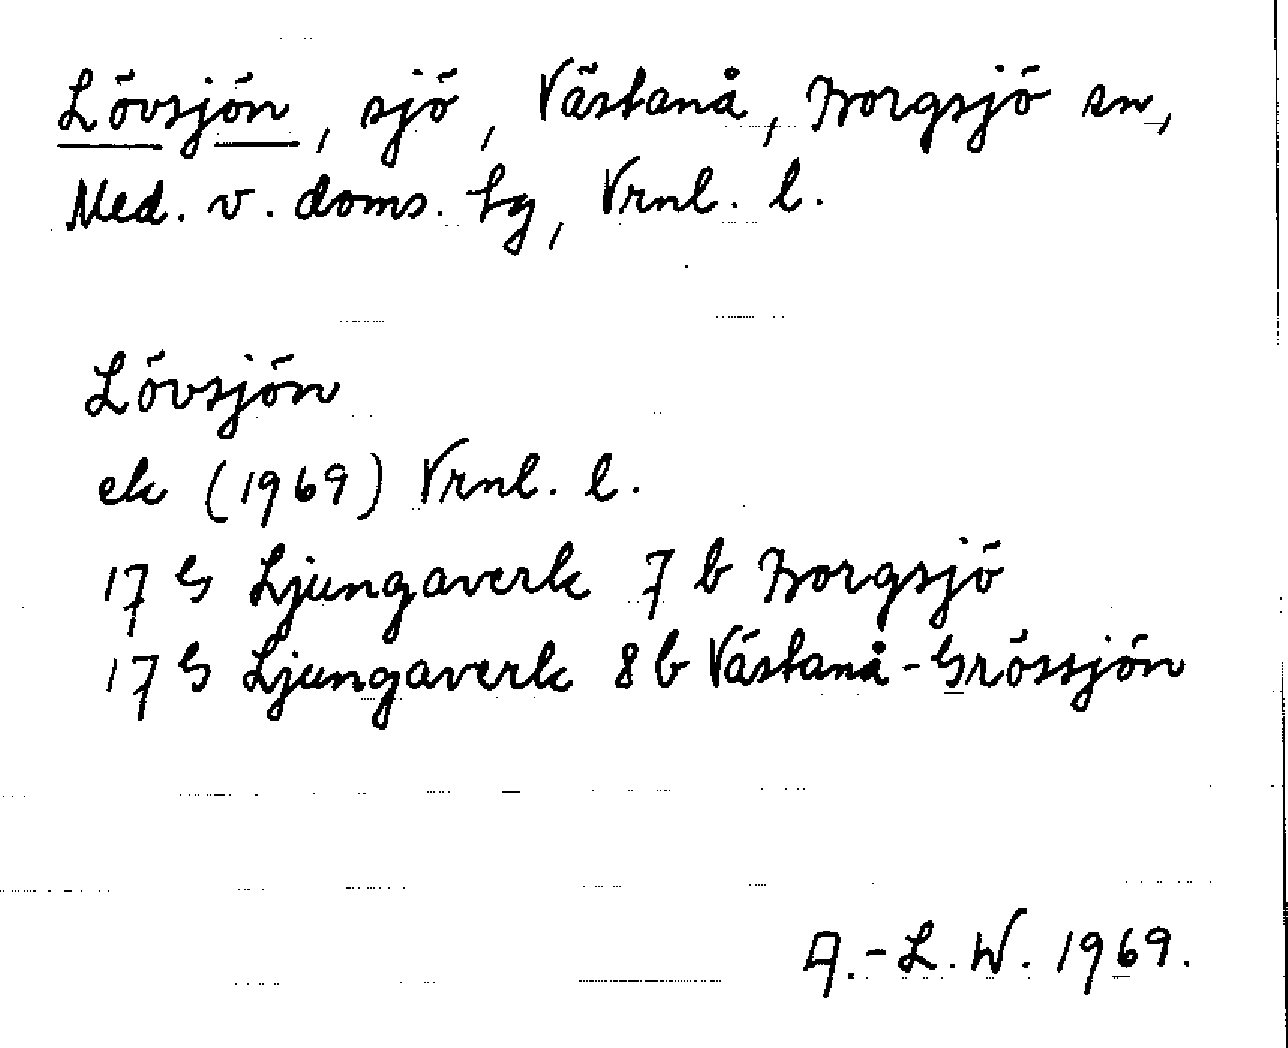 Lövsjön, sjö, Västanå, Borgsjö sn,
Med. v. doms. tg, Vrnl. l.
Lövsjön
ek (1969) Vrnl. l.
17 G Ljungaverk 7 b Borgsjö
17 G Ljungaverk 8 b Västanå-Grössjön
A.-L. W. 1969.